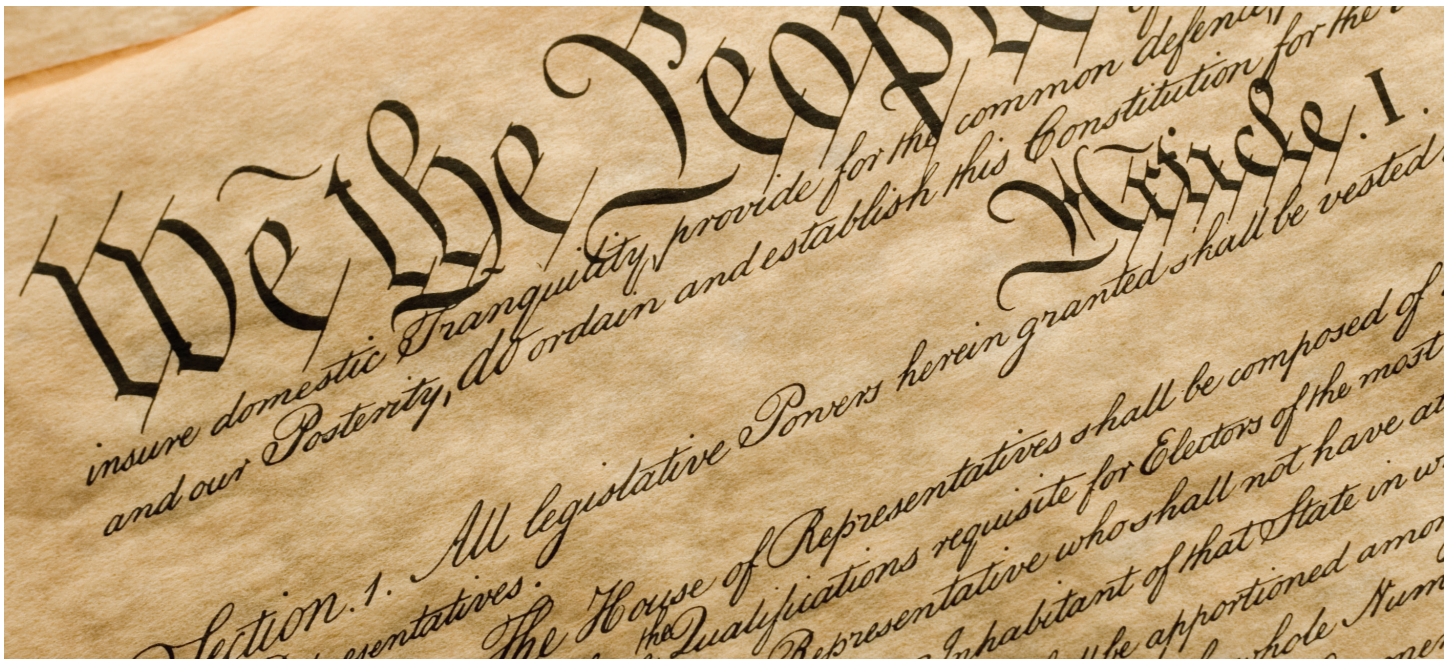 We the People
insure domestic Tranquility, provide for the common defence,
and our Posterity, do ordain and establish this Constitution for the
Article. I.
Section. 1. All legislative Powers herein granted shall be vested
Representatives.
The House of Representatives shall be composed of
the Qualifications requisite for Electors of the most
Representative who shall not have
Inhabitant of that State in
be apportioned
whole